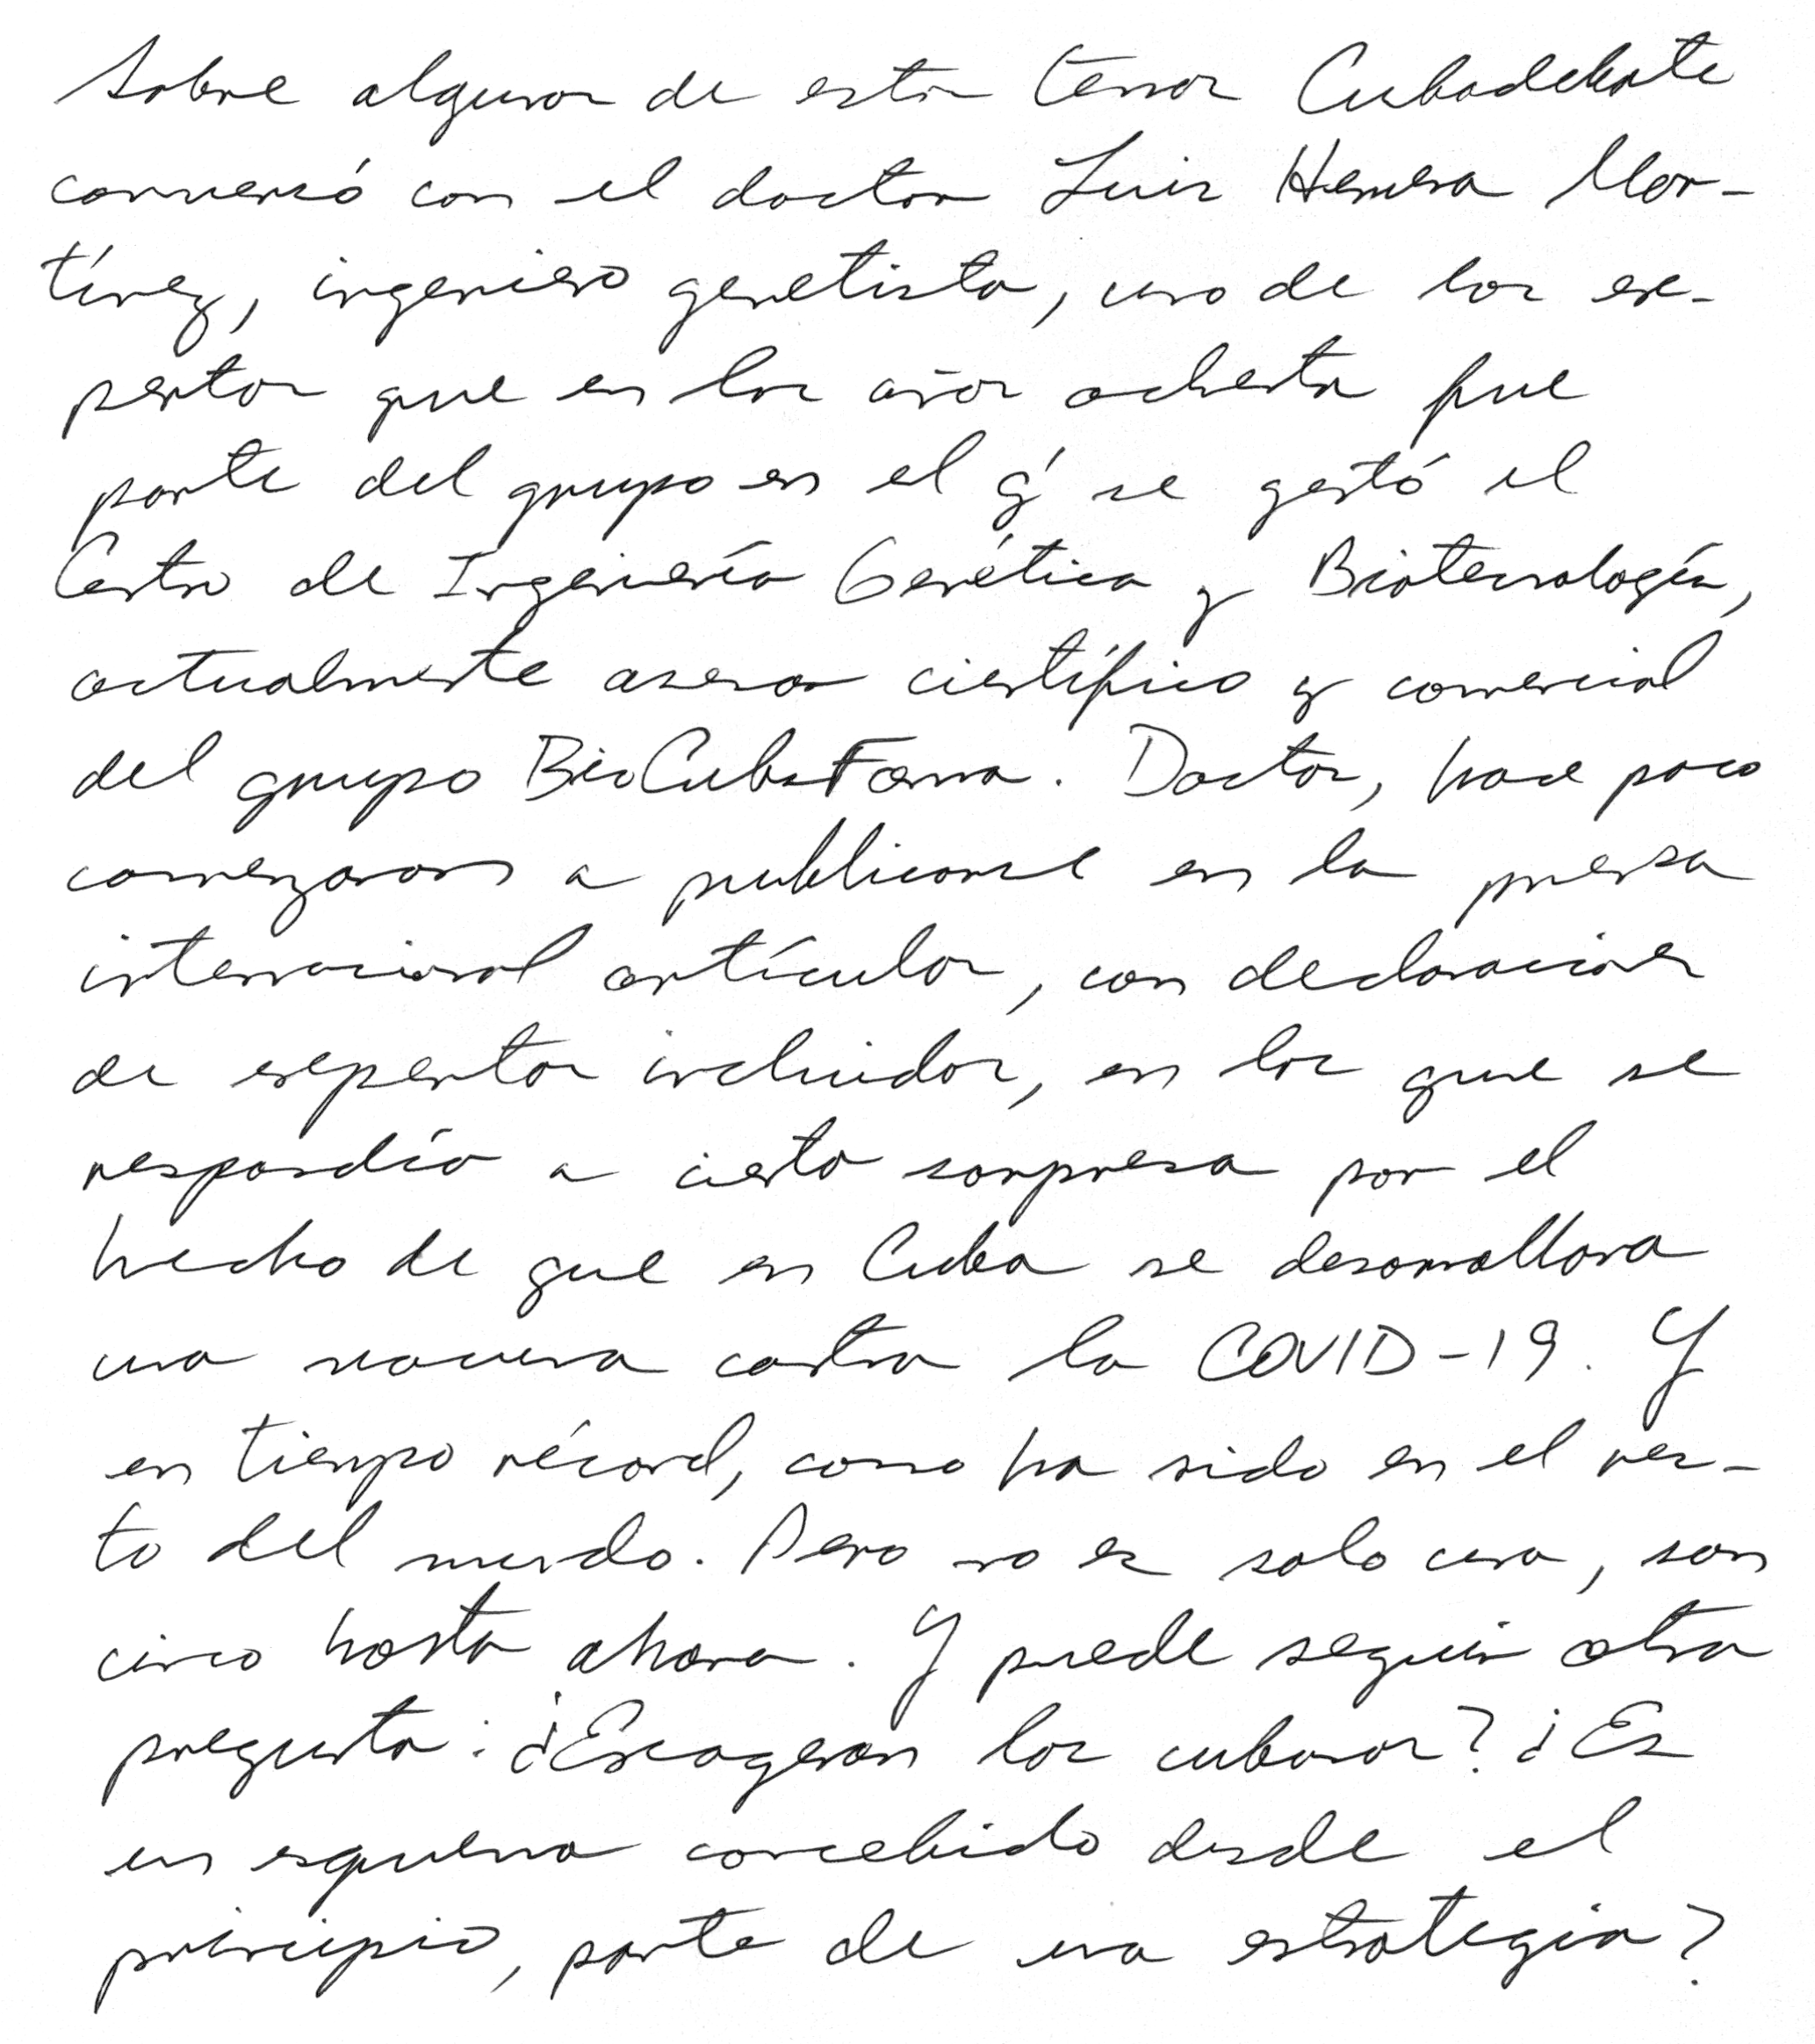 Sobre algunos de estos temas Cubadebate
conversó con el doctor Luis Herrera Mar-
tínez, ingeniero genetista, uno de los ex-
pertos que en los años ochenta fue
parte del grupo en el q' se gestó el
Centro de Ingeniería Genética y Biotecnología,
actualmente asesor científico y comercial
del grupo BioCubaFarma. Doctor, hace poco
comenzaron a publicarse en la prensa
internacional artículos, con declaraciones
de expertos incluidos, en los que se
respondía a cierta sorpresa por el
hecho de que en Cuba se desarrollara
una vacuna contra la COVID-19. Y
en tiempo récord, como ha sido en el res-
to del mundo. Pero no es solo una, son
cinco hasta ahora. Y puede seguir otra
pregunta: ¿Exageran los cubanos? ¿Es
un esquema concebido desde el
principio, parte de una estrategia?